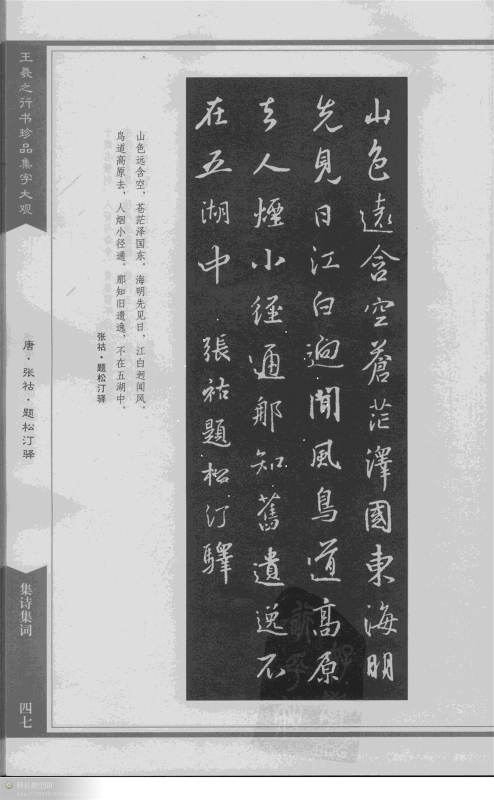 山色遠含空蒼茫澤國東海明
先見日江白逈聞風鳥道高原
去人煙小徑通那知舊遺逸不
在五湖中 張祜題松汀驛
山色远含空，苍茫泽国东。海明先见日，江白迥闻风。
鸟道高原去，人烟小径通。那知旧遗逸，不在五湖中。
张祜·题松汀驿
王羲之行书珍品集字大观
唐·张祜·题松汀驿
集诗集词
四七